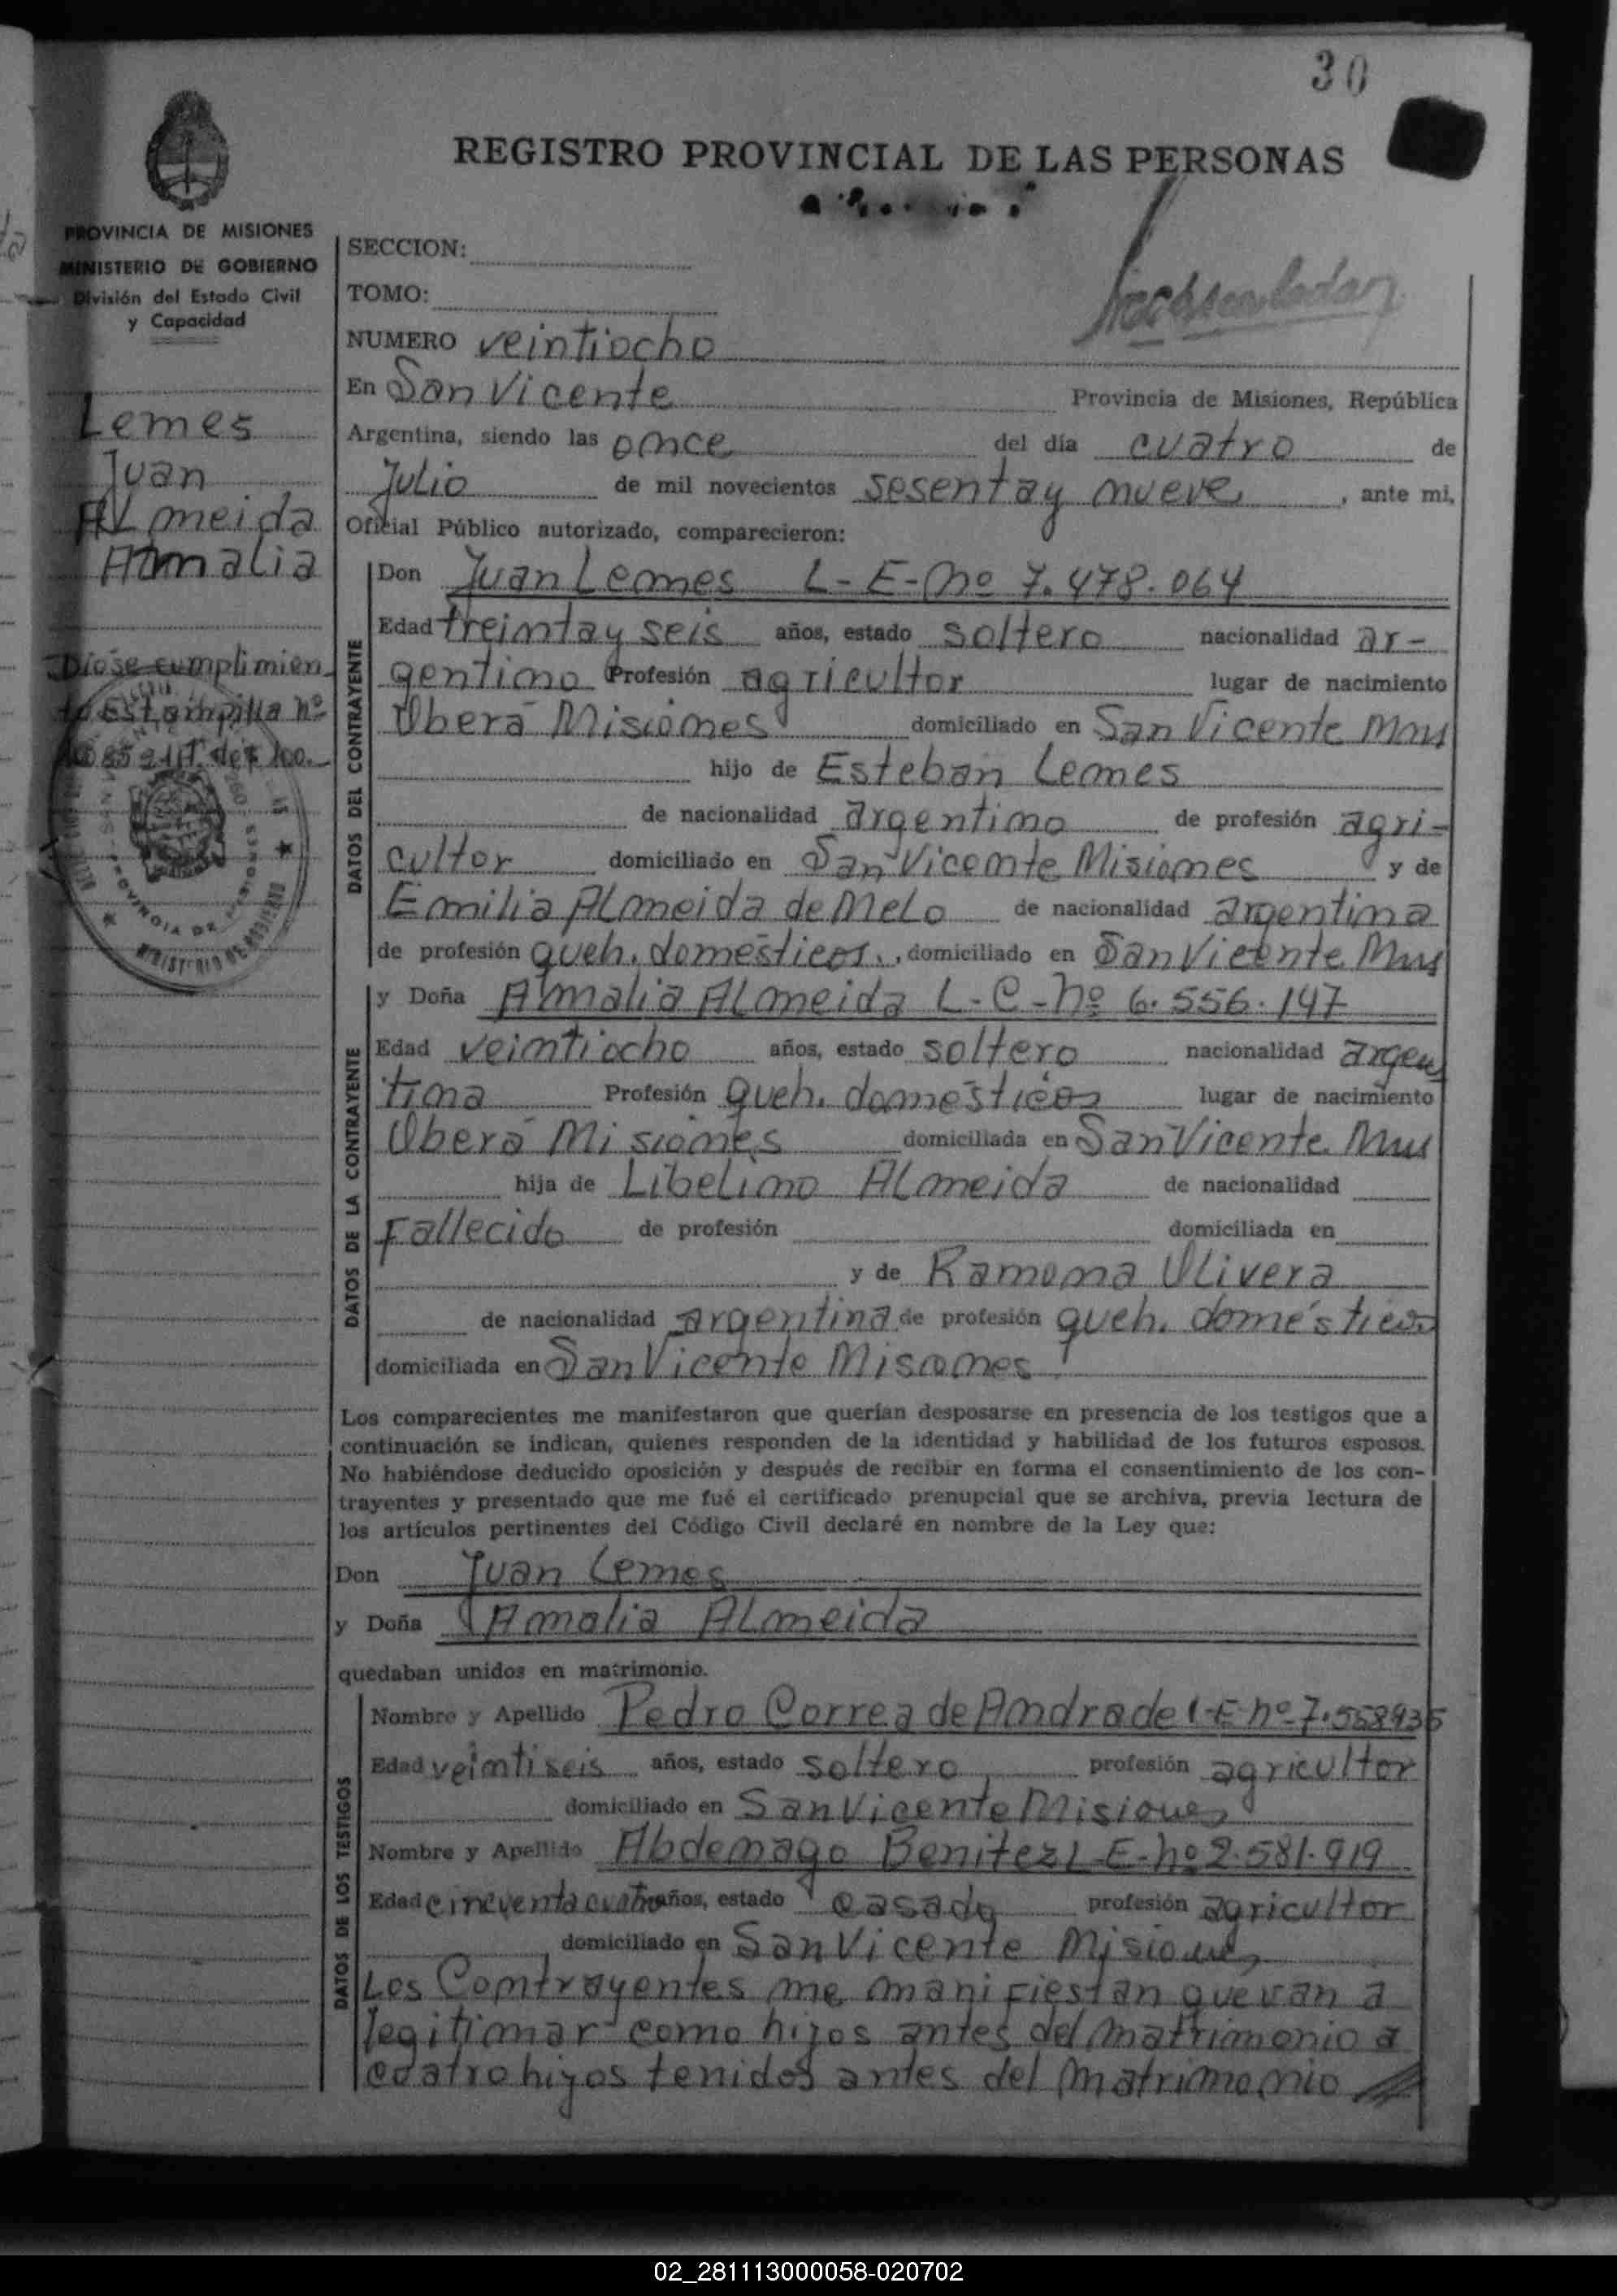 30
REGISTRO PROVINCIAL DE LAS PERSONAS
PROVINCIA DE MISIONES
MINISTERIO DE GOBIERNO
División del Estado Civil
y Capacidad
Lemes
Juan
ALmeida
Amalia
Diose cumplimien
to Estampilla nº
SECCION:
TOMO:
NUMERO veintiocho
En San Vicente Provincia de Misiones, República
Argentina, siendo las once del día cuatro de
Julio de mil novecientos sesenta y nueve, ante mi,
Oficial Público autorizado, comparecieron:
DATOS DEL CONTRAYENTE
Don Juan Lemes L-E-nº 7.478.064
Edad treinta y seis años, estado soltero nacionalidad ar-
gentino Profesión agricultor lugar de nacimiento
Oberá Misiones domiciliado en San Vicente Mns
hijo de Esteban Lemes
de nacionalidad argentino de profesión agri-
cultor domiciliado en San Vicente Misiones y de
Emilia ALmeida de MeLo de nacionalidad argentina
de profesión queh. domésticos, domiciliado en San Vicente Mns
DATOS DE LA CONTRAYENTE
y Doña Amalia ALmeida L-C-nº 6.556.147
Edad veintiocho años, estado soltero nacionalidad argen
tina Profesión queh. domésticos lugar de nacimiento
Oberá Misiones domiciliada en San Vicente Mns
hija de Libelino ALmeida de nacionalidad
Fallecido de profesión domiciliada en
y de Ramona Olivera
de nacionalidad argentina de profesión queh. domésticos
domiciliada en San Vicente Misiones
Los comparecientes me manifestaron que querían desposarse en presencia de los testigos que a
continuación se indican, quienes responden de la identidad y habilidad de los futuros esposos.
No habiéndose deducido oposición y después de recibir en forma el consentimiento de los con-
trayentes y presentado que me fué el certificado prenupcial que se archiva, previa lectura de
los artículos pertinentes del Código Civil declaré en nombre de la Ley que:
Don Juan Lemes
y Doña Amalia ALmeida
quedaban unidos en matrimonio.
DATOS DE LOS TESTIGOS
Nombre y Apellido Pedro Correa de Andrade L-E-nº-7.558935
Edad veintiseis años, estado soltero profesión agricultor
domiciliado en San Vicente Misiones
Nombre y Apellido Abdemago Benitez L-E-nº 2.581.919
Edad cincuenta cuatro años, estado casado profesión agricultor
domiciliado en San Vicente Misiones
Los Contrayentes me manifiestan que van a
legitimar como hijos antes del matrimonio a
cuatro hijos tenidos antes del matrimonio
02_281113000058-020702